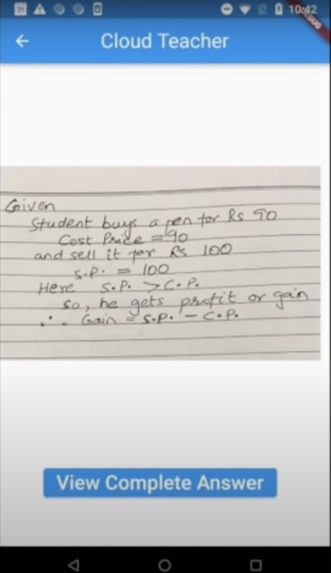 10:42
Cloud Teacher
Given
Student buys a pen for Rs 90
Cost Price = 90
and sell it for Rs 100
S.P. = 100
Here S.P. > C.P.
So, he gets profit or gain
∴ Gain = S.P. - C.P.
View Complete Answer